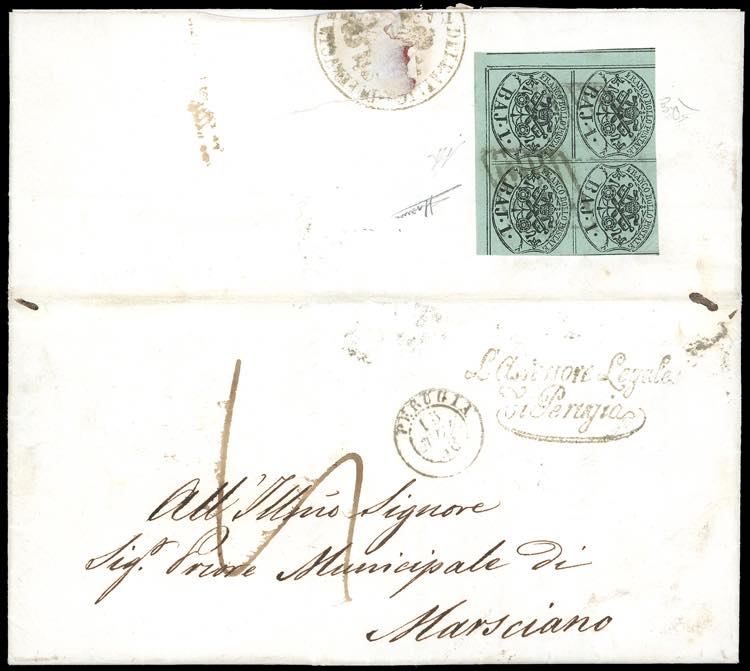 FRANCO BOLLO POSTALE
BAJ. 1.
FRANCO BOLLO POSTALE
BAJ. 1.
FRANCO BOLLO POSTALE
BAJ. 1.
FRANCO BOLLO POSTALE
BAJ. 1.
L'Assessore Legale
di Perugia
PERUGIA
15
All' Illmo Signore
Sigr. Priore Municipale di
Marsciano